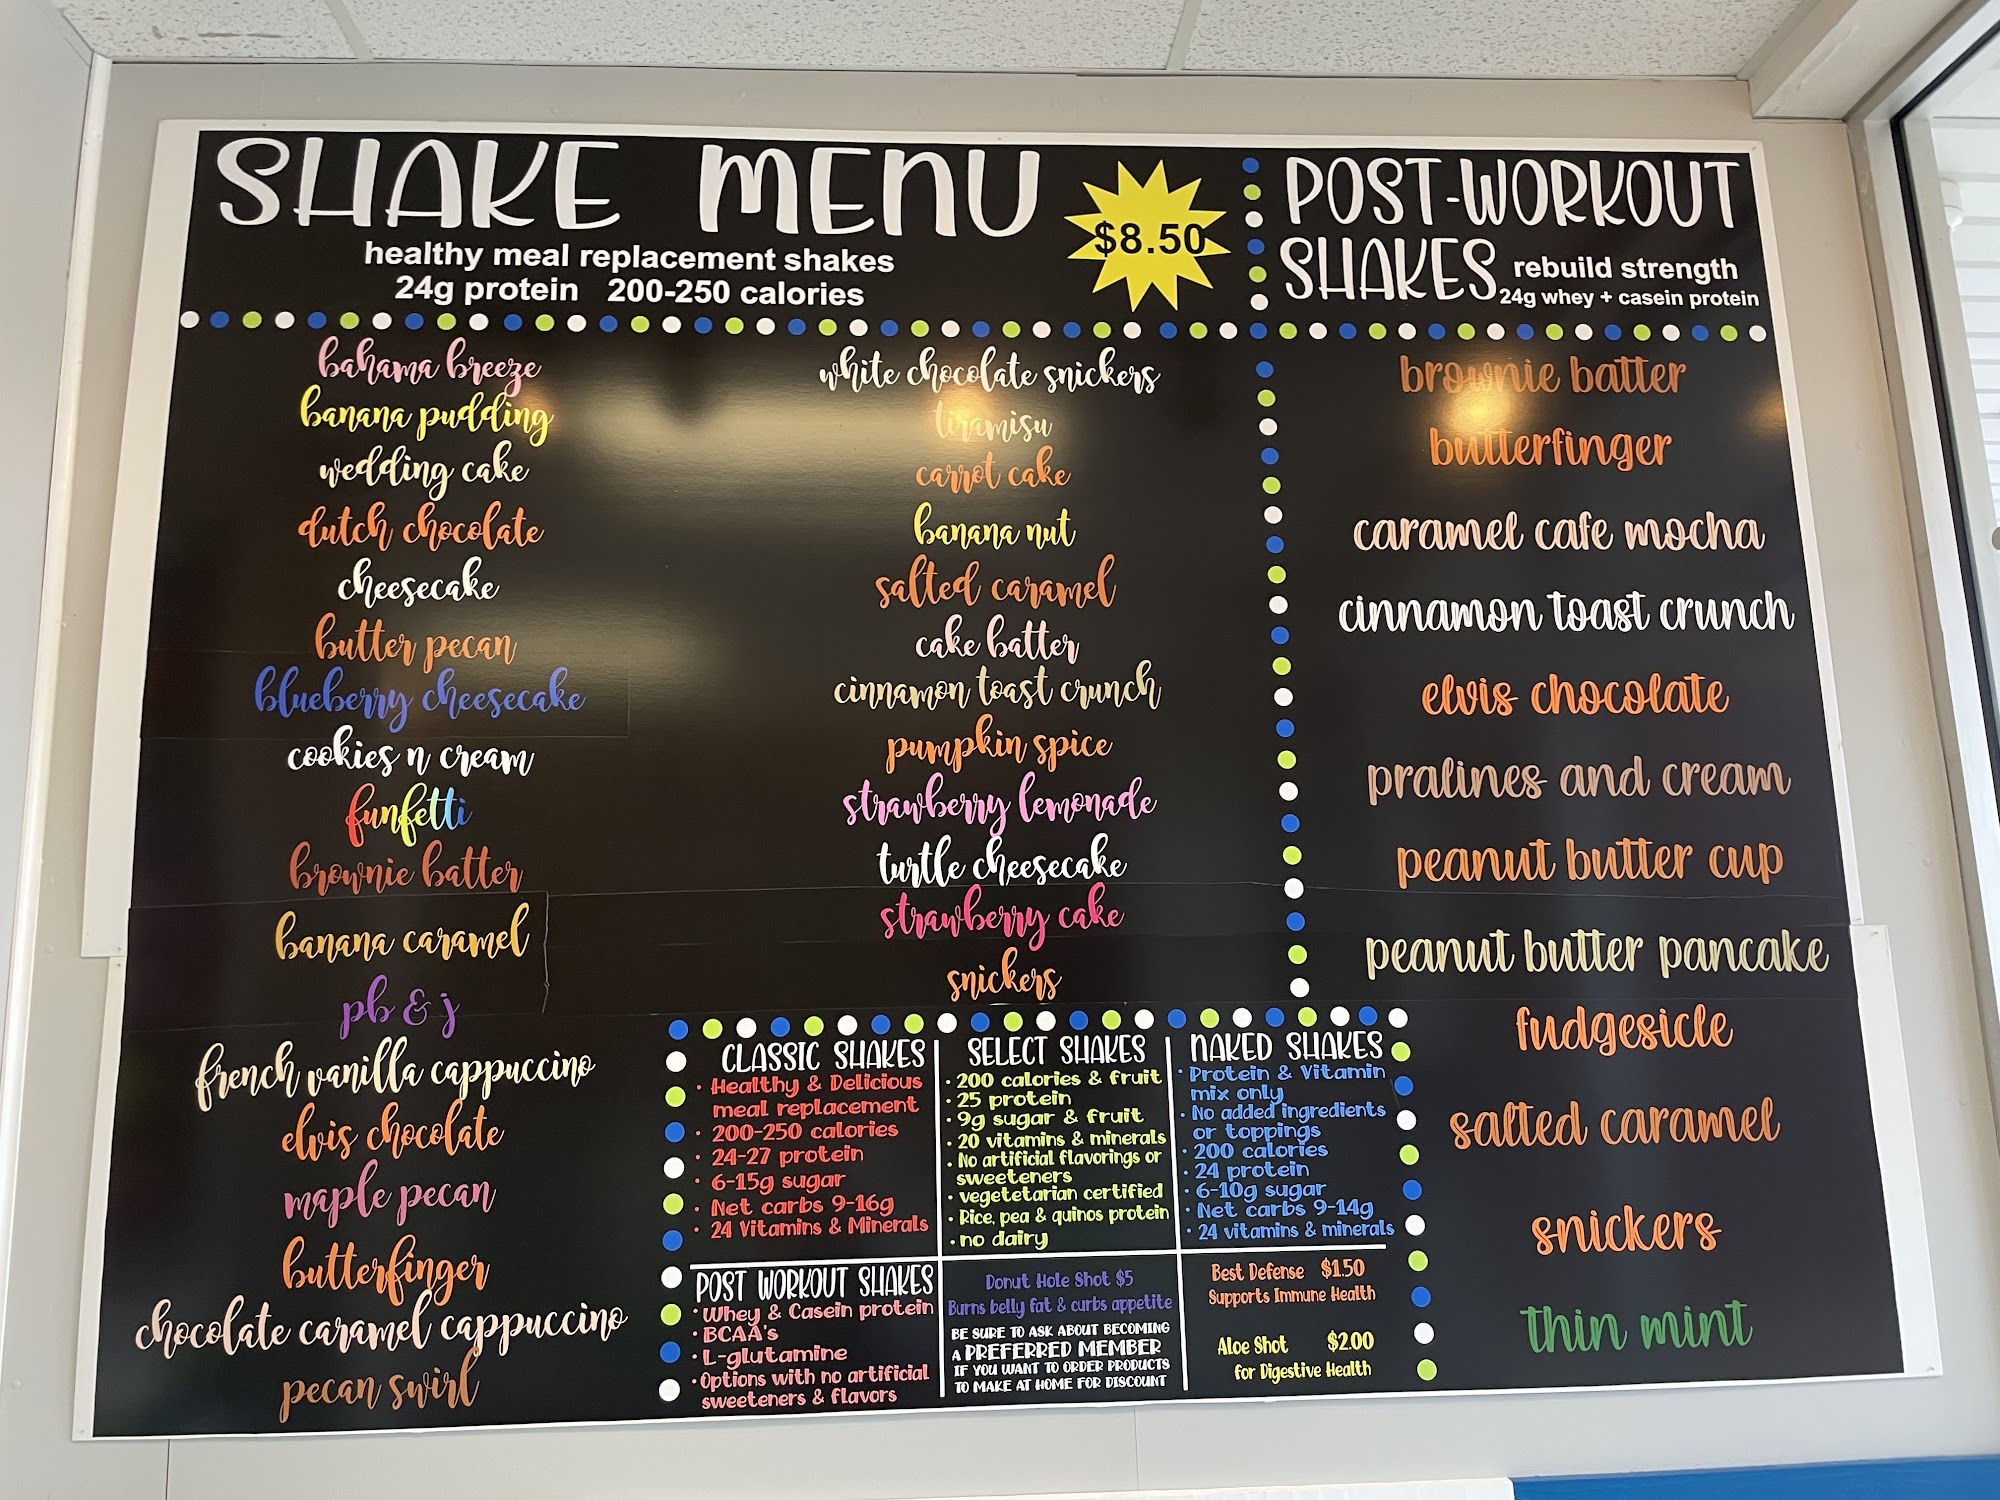 SHAKE MENU
healthy meal replacement shakes
24g protein 200-250 calories
$8.50
bahama breeze
banana pudding
wedding cake
dutch chocolate
cheesecake
butter pecan
blueberry cheesecake
cookies n cream
funfetti
brownie batter
banana caramel
pb & j
french vanilla cappuccino
elvis chocolate
maple pecan
butterfinger
chocolate caramel cappuccino
pecan swirl
white chocolate snickers
tiramisu
carrot cake
banana nut
salted caramel
cake batter
cinnamon toast crunch
pumpkin spice
strawberry lemonade
turtle cheesecake
strawberry cake
snickers
POST-WORKOUT
SHAKES
rebuild strength
24g whey + casein protein
brownie batter
butterfinger
caramel cafe mocha
cinnamon toast crunch
elvis chocolate
pralines and cream
peanut butter cup
peanut butter pancake
fudgesicle
salted caramel
snickers
thin mint
CLASSIC SHAKES
· Healthy & Delicious
meal replacement
· 200-250 calories
· 24-27 protein
· 6-15g sugar
· Net carbs 9-16g
· 24 Vitamins & Minerals
SELECT SHAKES
· 200 calories & fruit
· 25 protein
· 9g sugar & fruit
· 20 vitamins & minerals
· No artificial flavorings or
sweeteners
· vegetetarian certified
· Rice, pea & quinos protein
· no dairy
NAKED SHAKES
· Protein & Vitamin
mix only
· No added ingredients
or toppings
· 200 calories
· 24 protein
· 6-10g sugar
· Net carbs 9-14g
· 24 vitamins & minerals
POST WORKOUT SHAKES
· Whey & Casein protein
· BCAA's
· L-glutamine
· Options with no artificial
sweeteners & flavors
Donut Hole Shot $5
Burns belly fat & curbs appetite
BE SURE TO ASK ABOUT BECOMING
A PREFERRED MEMBER
IF YOU WANT TO ORDER PRODUCTS
TO MAKE AT HOME FOR DISCOUNT
Best Defense $1.50
Supports Immune Health
Aloe Shot $2.00
for Digestive Health